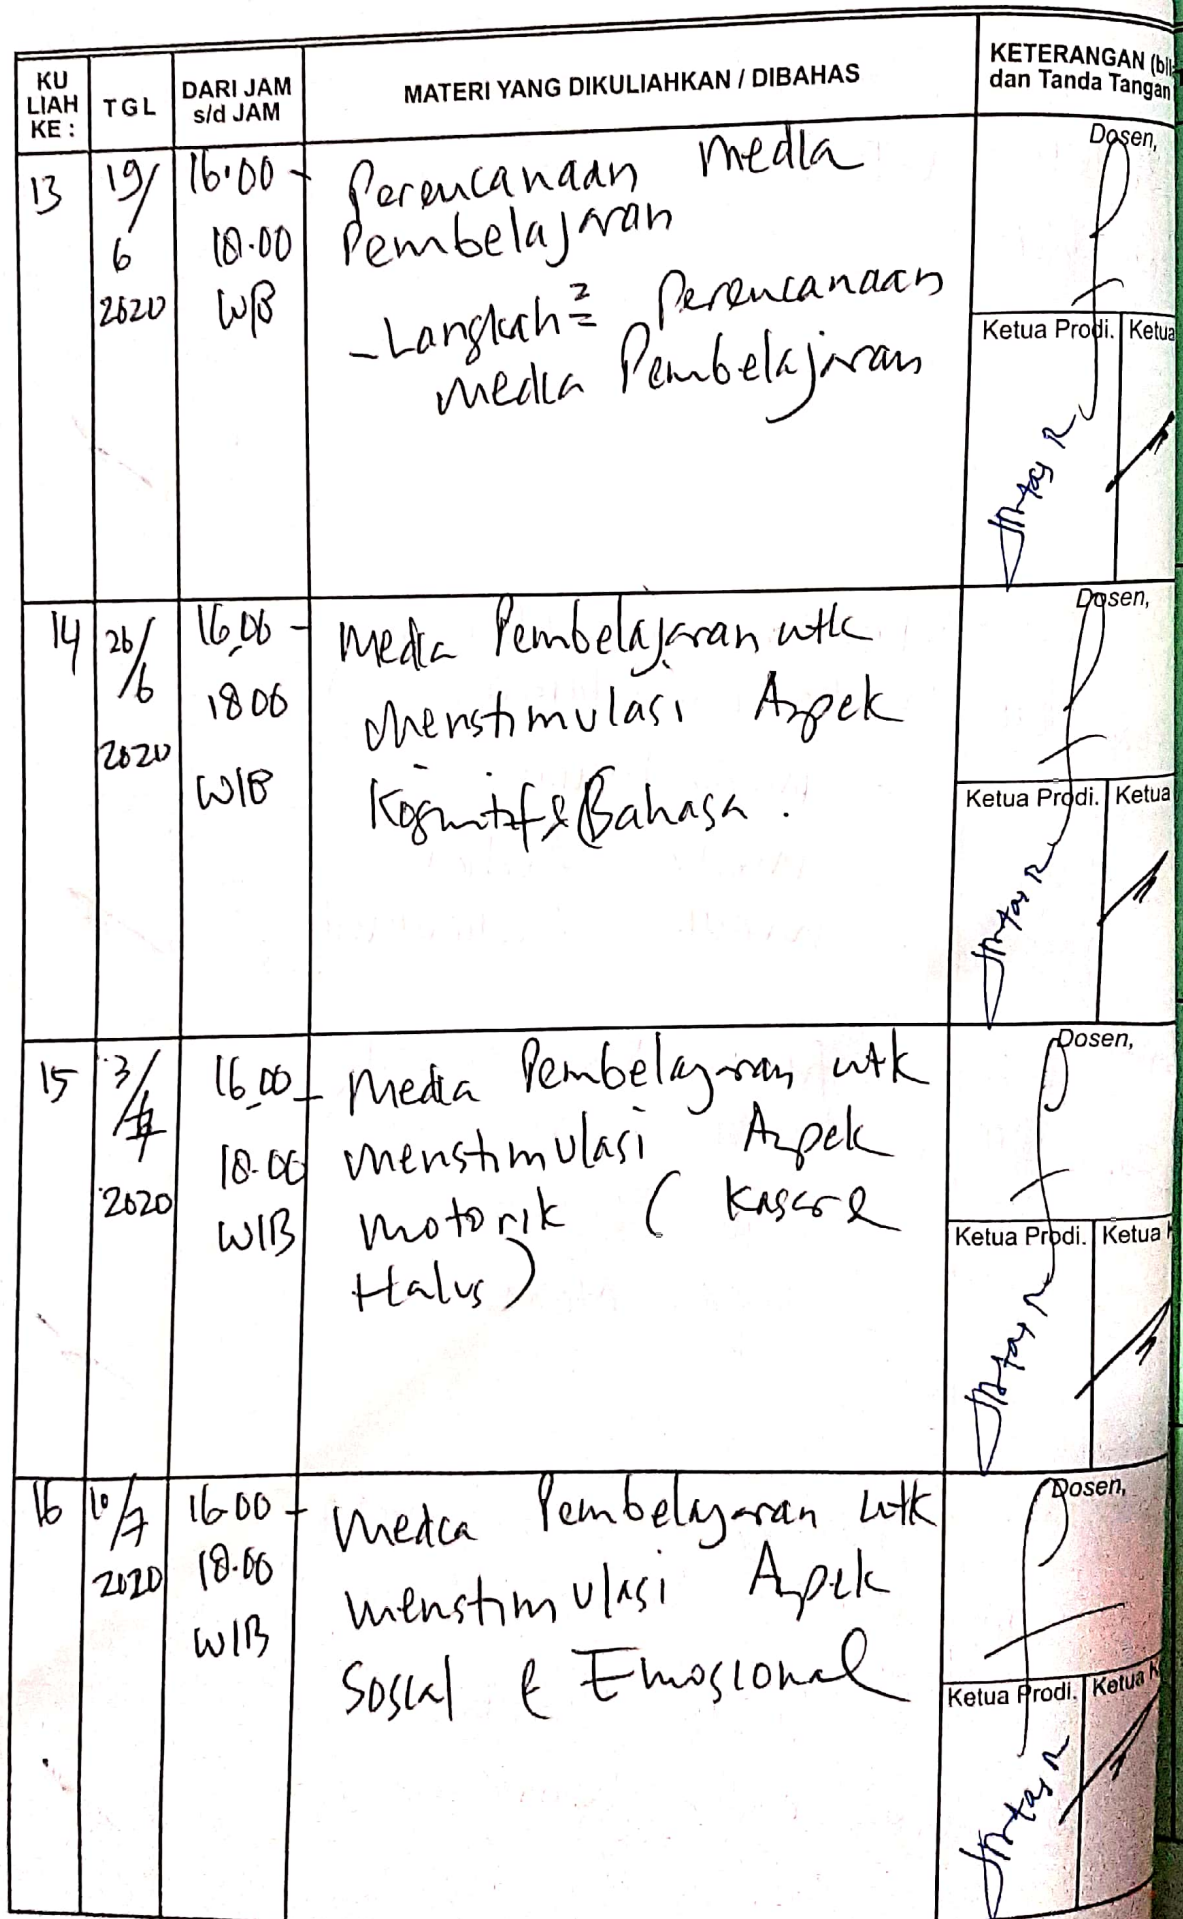 KU LIAH KE : TGL DARI JAM s/d JAM MATERI YANG DIKULIAHKAN / DIBAHAS KETERANGAN (bil dan Tanda Tangan
13 19/6 2020 16.00 - 18.00 WIB
Perencanaan Media
Pembelajaran
- Langkah² Perencanaan
Media Pembelajaran
Dosen,
Ketua Prodi. Ketua
14 26/6 2020 16.00 - 18.00 WIB
Media Pembelajaran utk
menstimulasi Aspek
Kognitif & Bahasa.
Dosen,
Ketua Prodi. Ketua
15 3/7 2020 16.00 - 18.00 WIB
Media Pembelajaran utk
menstimulasi Aspek
motorik (Kasar &
Halus)
Dosen,
Ketua Prodi. Ketua
16 10/7 2020 16.00 - 18.00 WIB
Media Pembelajaran utk
menstimulasi Aspek
Sosial & Emosional
Dosen,
Ketua Prodi. Ketua K